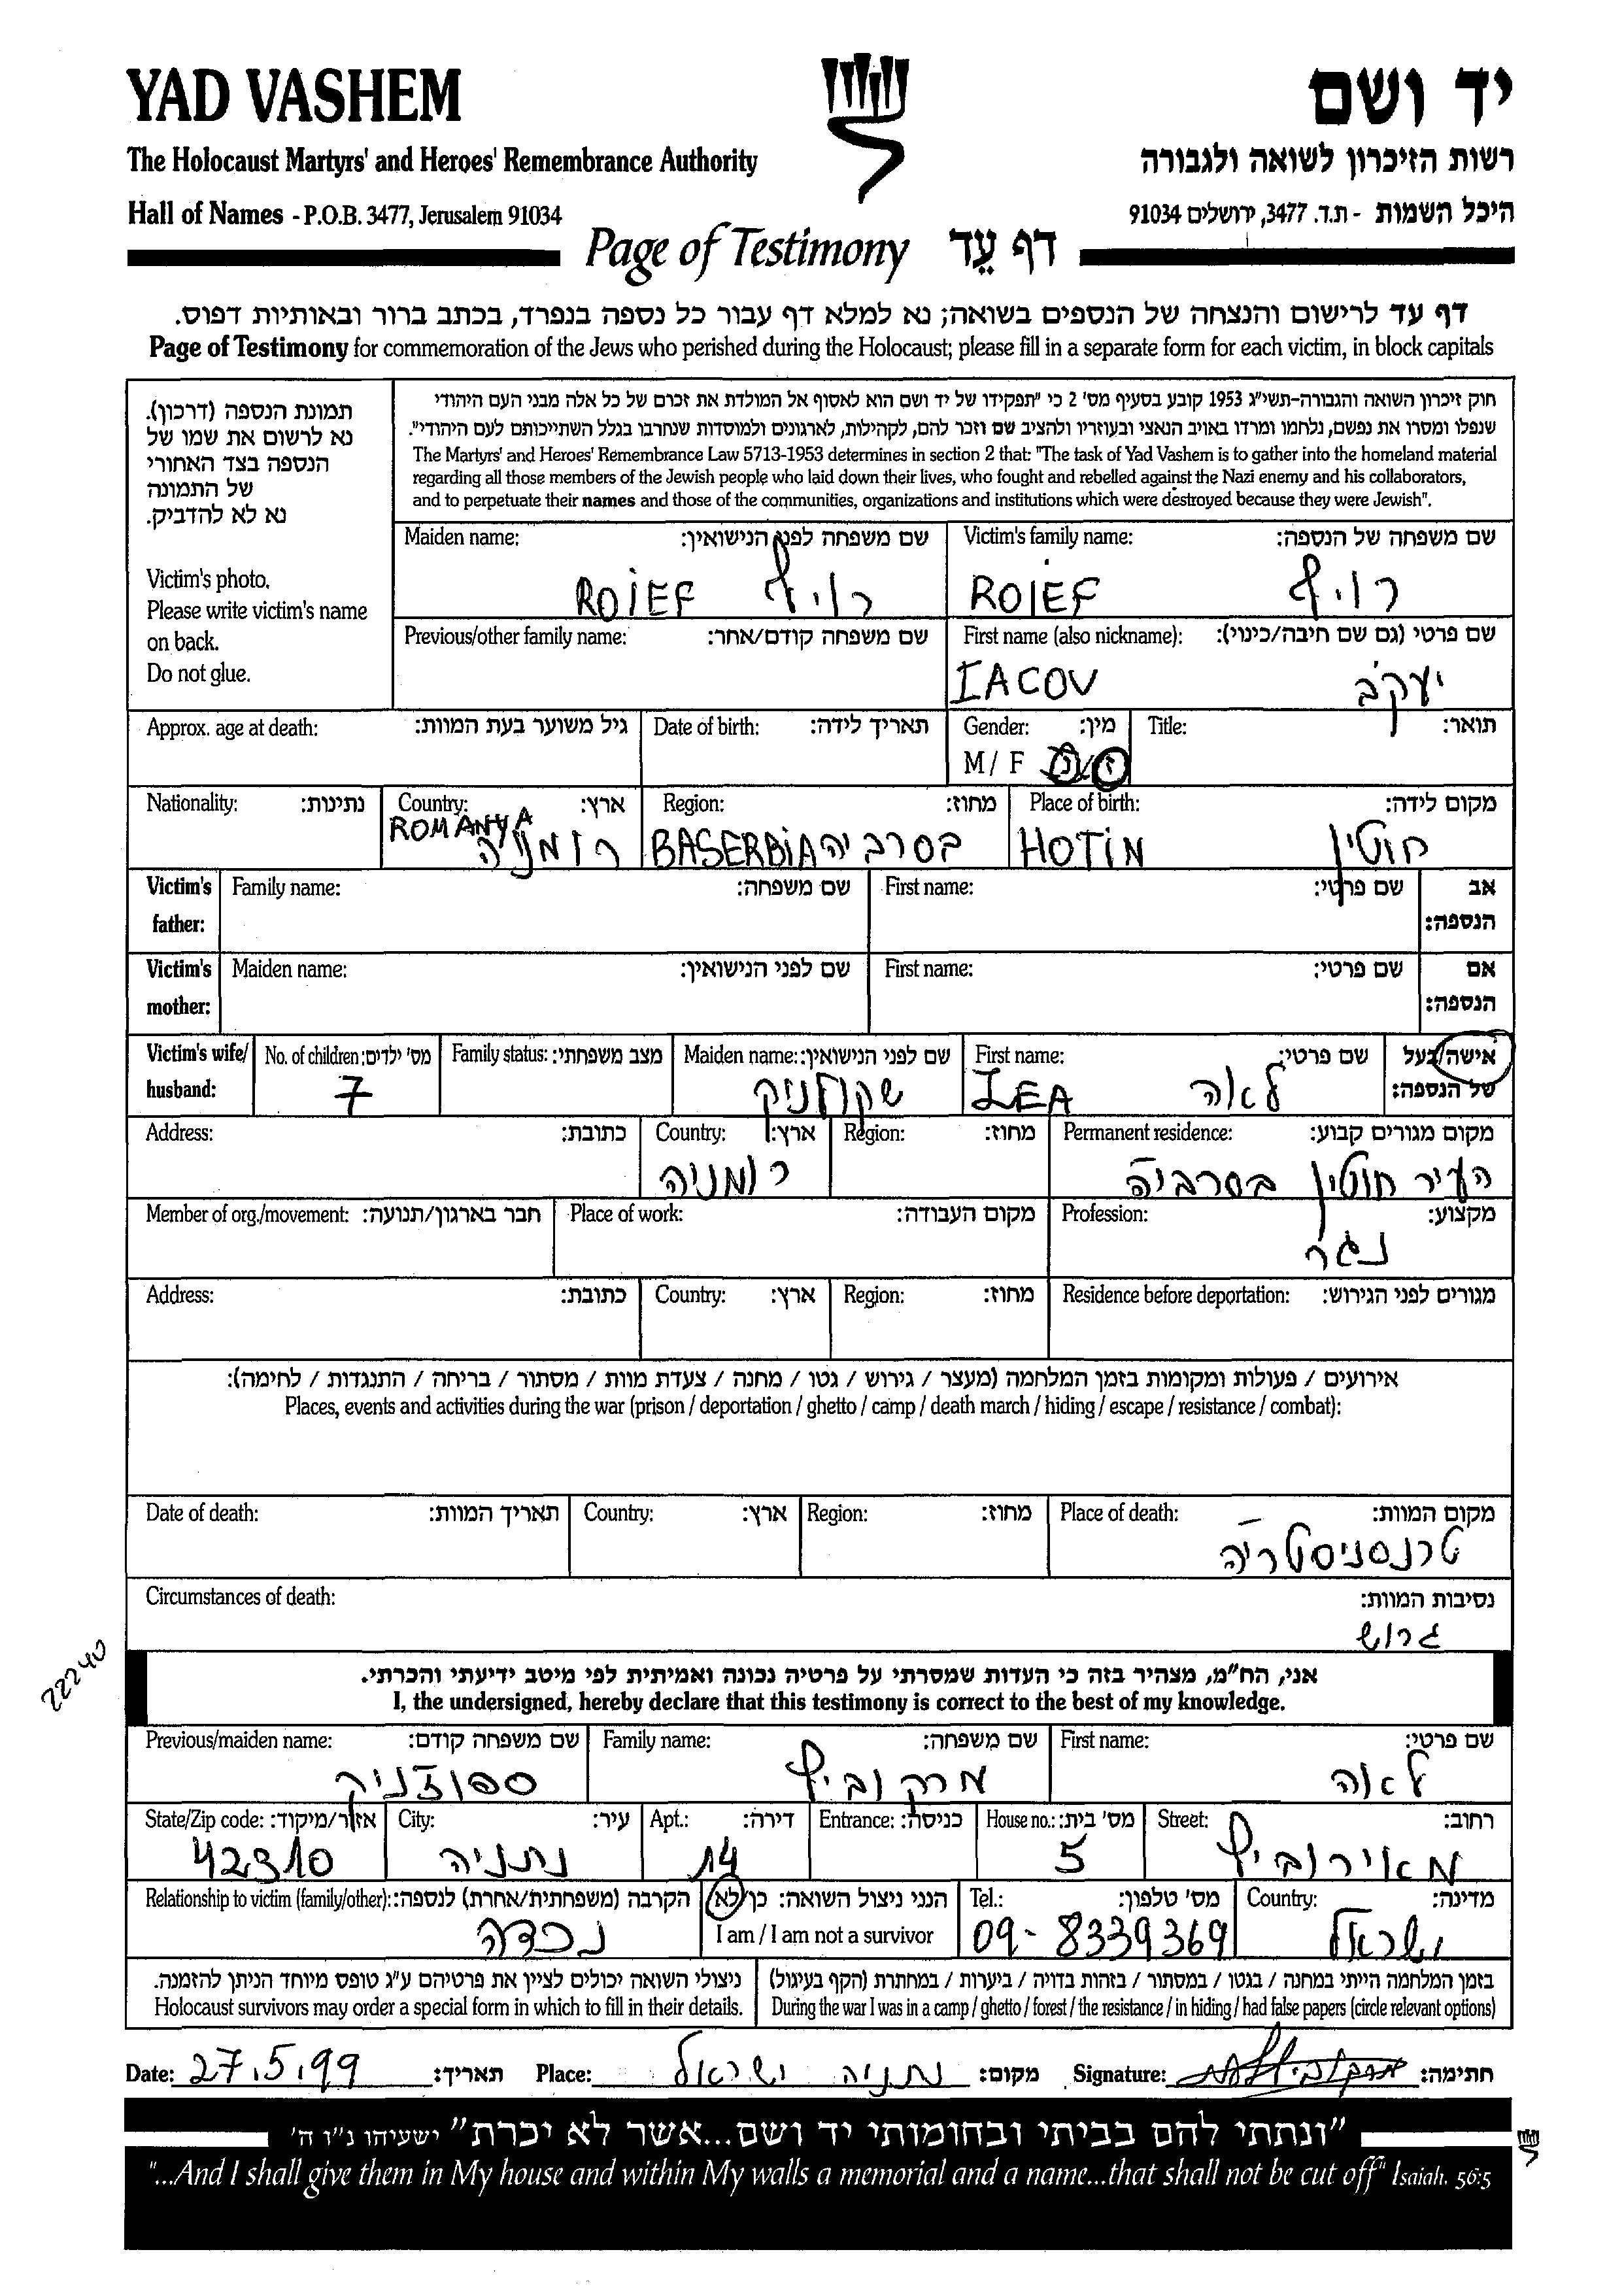 YAD VASHEM
יד ושם
The Holocaust Martyrs' and Heroes' Remembrance Authority
רשות הזיכרון לשואה ולגבורה
Hall of Names - P.O.B. 3477, Jerusalem 91034
היכל השמות - ת.ד. 3477, ירושלים 91034
Page of Testimony דף עֵד
דף עד לרישום והנצחה של הנספים בשואה; נא למלא דף עבור כל נספה בנפרד, בכתב ברור ובאותיות דפוס.
Page of Testimony for commemoration of the Jews who perished during the Holocaust; please fill in a separate form for each victim, in block capitals
תמונת הנספה (דרכון).
נא לרשום את שמו של
הנספה בצד האחורי
של התמונה
נא לא להדביק.
Victim's photo.
Please write victim's name
on back.
Do not glue.
חוק זיכרון השואה והגבורה-תשי"ג 1953 קובע בסעיף מס' 2 כי "תפקידו של יד ושם הוא לאסוף אל המולדת את זכרם של כל אלה מבני העם היהודי
שנפלו ומסרו את נפשם, נלחמו ומרדו באויב הנאצי ובעוזריו ולהציב שם וזכר להם, לקהילות, לארגונים ולמוסדות שנחרבו בגלל השתייכותם לעם היהודי".
The Martyrs' and Heroes' Remembrance Law 5713-1953 determines in section 2 that: "The task of Yad Vashem is to gather into the homeland material
regarding all those members of the Jewish people who laid down their lives, who fought and rebelled against the Nazi enemy and his collaborators,
and to perpetuate their names and those of the communities, organizations and institutions which were destroyed because they were Jewish".
Maiden name: שם משפחה לפני הנישואין:
ROIEF רויף
Victim's family name: שם משפחה של הנספה:
ROIEF רויף
Previous/other family name: שם משפחה קודם/אחר:
First name (also nickname): שם פרטי (גם שם חיבה/כינוי):
IACOV יעקב
Approx. age at death: גיל משוער בעת המוות:
Date of birth: תאריך לידה:
Gender: מין:
M / F ז
Title: תואר:
Nationality: נתינות:
Country: ארץ:
ROMANYA רומניה
Region: מחוז:
BASERBIA בסרביה
Place of birth: מקום לידה:
HOTIN חוטין
Victim's father: Family name: שם משפחה:
First name: שם פרטי: אב הנספה:
Victim's mother: Maiden name: שם לפני הנישואין:
First name: שם פרטי: אם הנספה:
Victim's wife/ husband:
No. of children: מס' ילדים:
7
Family status: מצב משפחתי:
Maiden name: שם לפני הנישואין:
שקולניק
First name: שם פרטי:
LEA לאה
אישה/בעל של הנספה:
Address: כתובת:
Country: ארץ:
רומניה
Region: מחוז:
Permanent residence: מקום מגורים קבוע:
העיר חוטין בסרביה
Member of org./movement: חבר בארגון/תנועה:
Place of work: מקום העבודה:
Profession: מקצוע:
נגר
Address: כתובת:
Country: ארץ:
Region: מחוז:
Residence before deportation: מגורים לפני הגירוש:
אירועים / פעולות ומקומות בזמן המלחמה (מעצר / גירוש / גטו / מחנה / צעדת מוות / מסתור / בריחה / התנגדות / לחימה):
Places, events and activities during the war (prison / deportation / ghetto / camp / death march / hiding / escape / resistance / combat):
Date of death: תאריך המוות:
Country: ארץ:
Region: מחוז:
Place of death: מקום המוות:
טרנסניסטריה
Circumstances of death: נסיבות המוות:
גרוש
22240
אני, הח"מ, מצהיר בזה כי העדות שמסרתי על פרטיה נכונה ואמיתית לפי מיטב ידיעתי והכרתי.
I, the undersigned, hereby declare that this testimony is correct to the best of my knowledge.
Previous/maiden name: שם משפחה קודם:
Family name: שם משפחה:
מרקוביץ
First name: שם פרטי:
לאה
State/Zip code: אזור/מיקוד:
42310
City: עיר:
נתניה
Apt.: דירה:
14
Entrance: כניסה:
House no.: מס' בית:
5
Street: רחוב:
מאירוביץ
Relationship to victim (family/other): הקרבה (משפחתית/אחרת) לנספה:
נכדה
הנני ניצול השואה: כן/לא
I am / I am not a survivor
Tel.: מס' טלפון:
09-8339369
Country: מדינה:
ישראל
ניצולי השואה יכולים לציין את פרטיהם ע"ג טופס מיוחד הניתן להזמנה.
Holocaust survivors may order a special form in which to fill in their details.
בזמן המלחמה הייתי במחנה / בגטו / במסתור / בזהות בדויה / ביערות / במחתרת (הקף בעיגול)
During the war I was in a camp / ghetto / forest / the resistance / in hiding / had false papers (circle relevant options)
Date: 27.5.99 תאריך: Place: נתניה ישראל מקום: Signature: חתימה:
"ונתתי להם בביתי ובחומותי יד ושם...אשר לא יכרת" ישעיהו נ"ו ה'
"...And I shall give them in My house and within My walls a memorial and a name...that shall not be cut off" Isaiah. 56:5